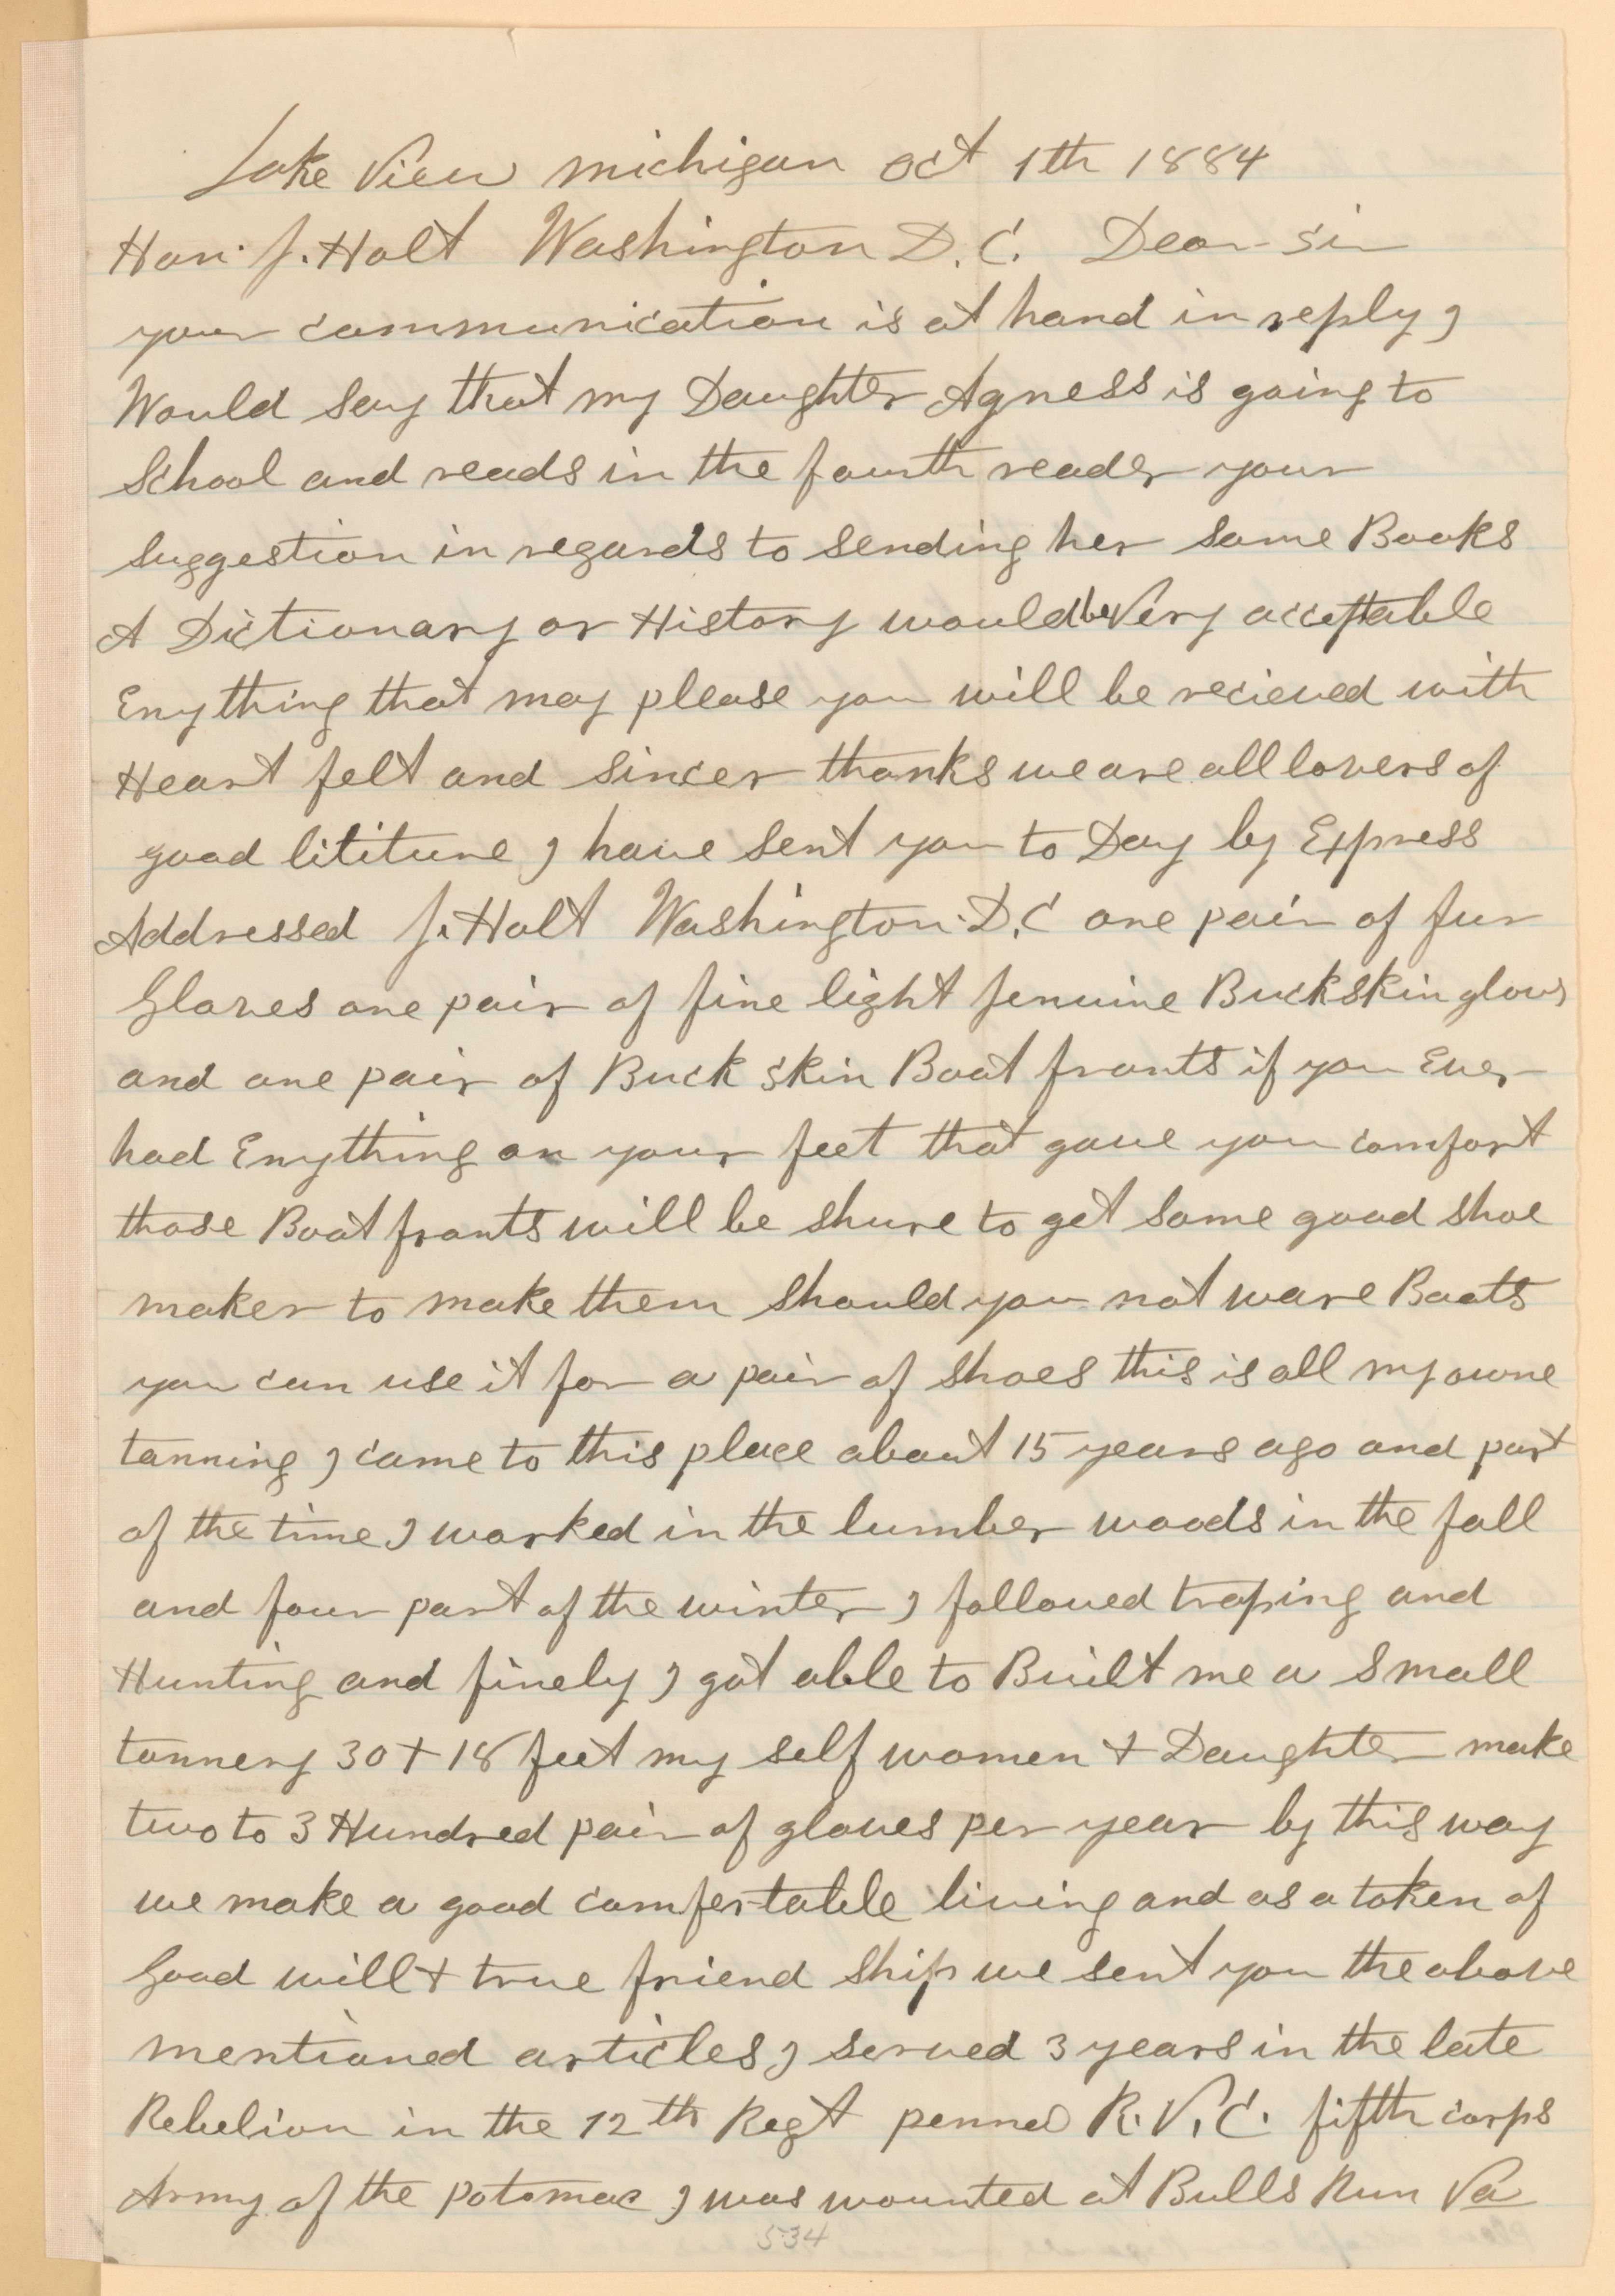 Lake View michigan oct 1th 1884
Hon. J. Holt Washington D.C. Dear sir
your communication is at hand in reply I
Would say that my Daughter Agness is going to
School and reads in the fourth reader your
suggestion in regards to sending her some Books
A Dictionary or History would be Very acceptable
Enything that may please you will be recieved with
Heart felt and sincer thanks we are all lovers of
good lititure I have sent you to Day by Express
Addressed J. Holt Washington D.C one pair of fur
Gloves one pair of fine light jenuine Buckskin gloves
and one pair of Buck skin Boot fronts if you Ever
had Enything on your feet that gave you comfort
those Boot fronts will be shure to get some good shoe
maker to make them should you not ware Boots
you can use it for a pair of shoes this is all my owne
tanning I came to this place about 15 years ago and part
of the time I worked in the lumber woods in the fall
and four part of the winter I followed traping and
Hunting and finely I got able to Built me a small
tannery 30 + 18 feet my self women + Daughter make
two to 3 Hundred pair of gloves per year by this way
we make a good comfertable living and as a token of
Good will + true friend ship we sent you the above
mentioned articles I served 3 years in the late
Rebelion in the 12th Regt penna R.V.C. fifth corps
Army of the potomac I was wounted at Bulls Run Va
534